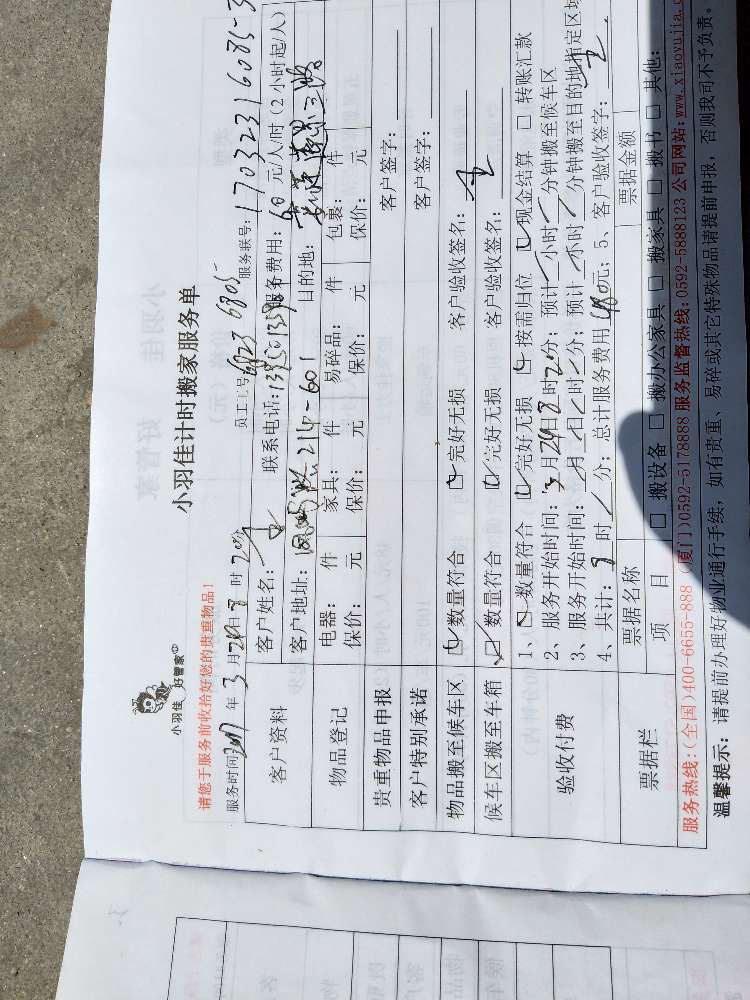 小羽佳 好管家
小羽佳计时搬家服务单
请您于服务前收拾好您的贵重物品！
服务时间 2017 年 3 月 29 日 8 时 20分 员工工号 6823 6805 服务联号：17032316085-3
客户资料 客户姓名： 联系电话： 服务费用：60 元/人/时（2小时起/人）
客户地址： 214-601 目的地：
物品登记 电器： 件 家具： 件 易碎品： 件 包裹： 件
保价： 元 保价： 元 保价： 元 保价： 元
贵重物品申报 客户签字：
客户特别承诺 客户签字：
物品搬至候车区 数量符合 完好无损 客户验收签名：
候车区搬至车箱 数量符合 完好无损 客户验收签名：
验收付费 1、 数量符合 完好无损 按需归位 现金结算 转账汇款
2、服务开始时间：3月29日8时20分；预计 小时 分钟搬至候车区
3、服务开始时间： 月 日 时 分；预计 小时 分钟搬至目的地指定区域
4、共计： 时 分；总计服务费用 元；5、客户验收签字：
票据栏 票据名称 票据金额
项 目 搬设备 搬办公家具 搬家具 搬书 其他：
服务热线：(全国)400-6655-888 (厦门)0592-5178888 服务监督热线：0592-5888123 公司网站：www.xiaoyujia.c
温馨提示：请提前办理好物业通行手续，如有贵重、易碎或其它特殊物品请提前申报，否则我司不予负责。